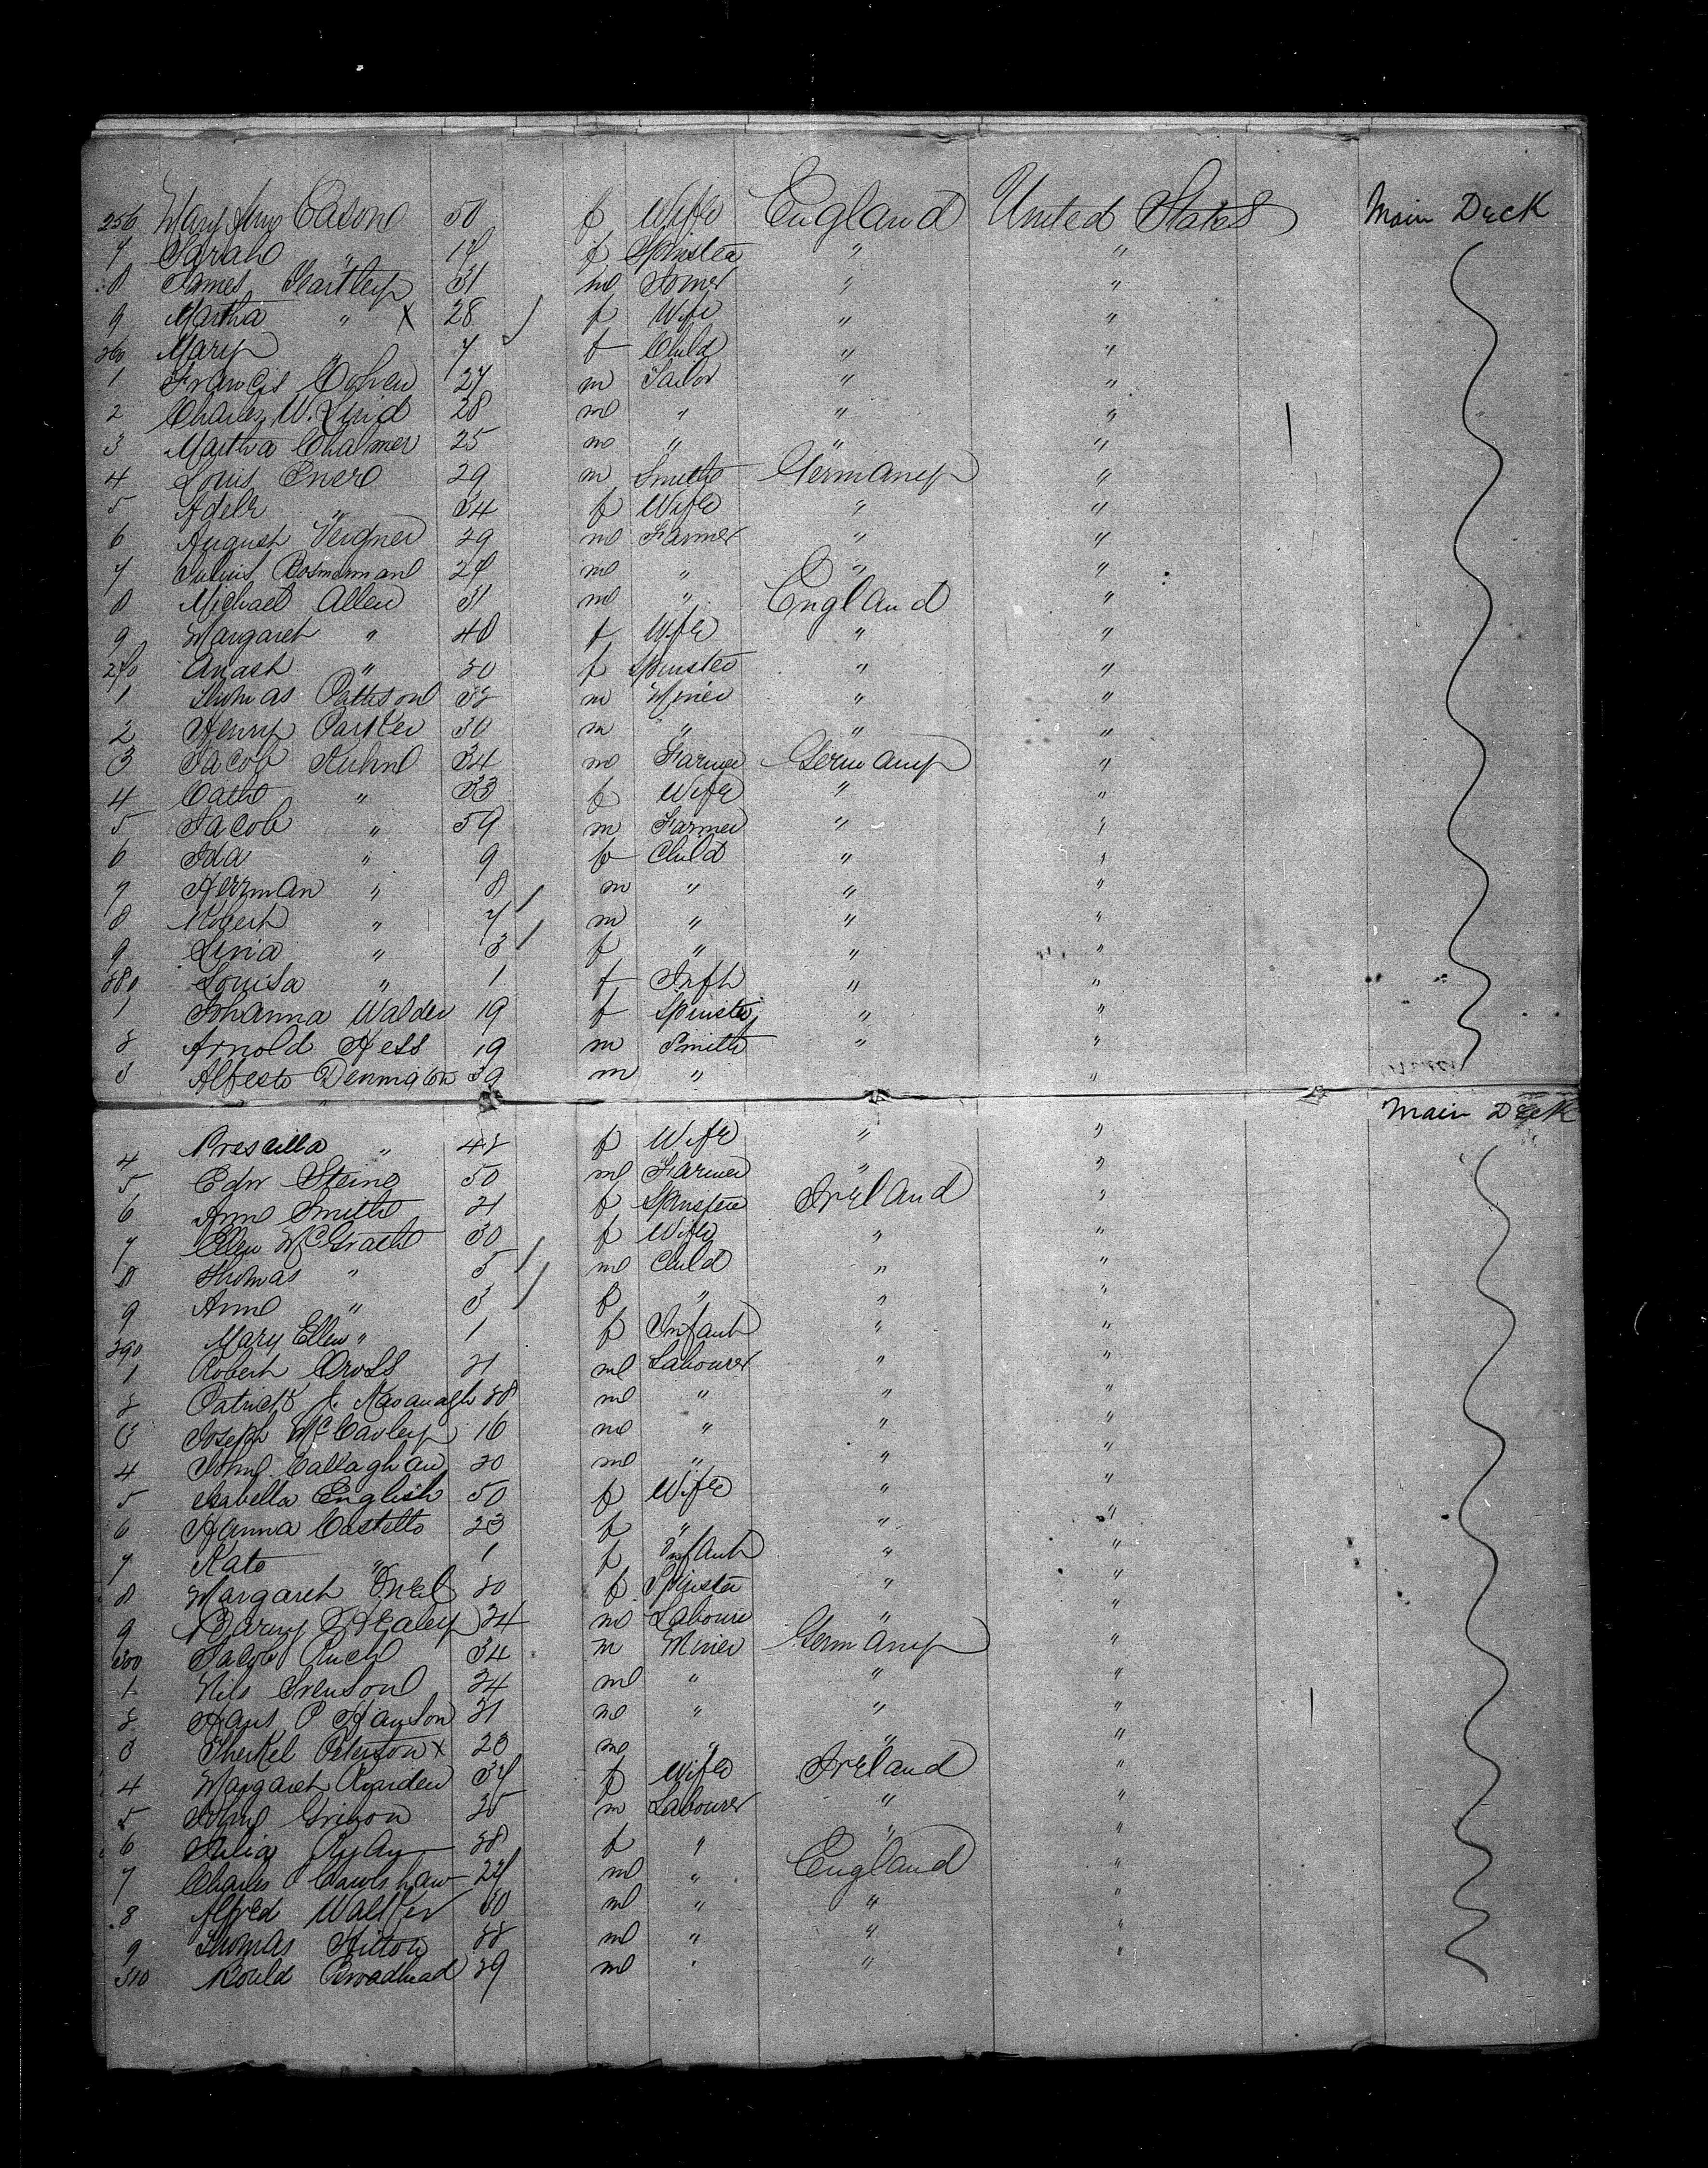 256 Mary Ann Eason 50 f Wife England United States Main Deck
7 Sarah " 17 f Spinster " "
8 James Hartley 31 m " "
9 Martha " X 28 / f Wife " "
260 Mary " 7 f Child " "
1 Francis Cohen 27 m Tailor " "
2 Charles W. Lind 28 m " " "
3 Martha Chalmer 25 m " " "
4 Louis 29 m Smith Germany "
5 Adele " 34 f Wife " "
6 August 29 m Farmer " "
7 Julius 27 m " " "
8 Michael Allen 51 m " England "
9 Margaret " 48 f Wife " "
270 " 20 f Spinster " "
1 Thomas Pattison 32 m Miner " "
2 Henry Parker 30 m " " "
3 Jacob Kuhn 34 m Farmer Germany "
4 Cath " 33 f Wife " "
5 Jacob " 59 m Farmer " "
6 Ida " 9 f Child " "
7 Herrman " 8 / m " " "
8 Robert " 7 / m " " "
9 Lina " 3 / f " " "
280 Louisa " 1 f Inft " "
1 Johanna Walder 19 f Spinster " "
2 Arnold Hess 19 m Smith " "
3 39 m " "
Main Deck
4 Prescilla " 42 f Wife " "
5 Edw 50 m Farmer " "
6 Ann Smith 21 f Spinster Ireland "
7 Ellen McGrath 30 f Wife " "
8 Thomas " 5 / m Child " "
9 Ann " 3 / f " " "
290 Mary Ellen " 1 f Infant " "
1 Robert Cross 21 m Labourer " "
2 Patrick J. Kavanagh 28 m " " "
3 Joseph McCauley 16 m " " "
4 John Callaghan 20 m " " "
5 Isabella English 50 f Wife " "
6 Hanna Costello 23 f " " "
7 Kate " 1 f Infant " "
8 Margaret 20 f Spinster " "
9 Healey 24 m Labourer " "
300 Jacob 34 m Miner Germany "
1 Nils Svenson 24 m " " "
2 Hans P Hanson 21 m " " "
3 Peterson X 23 m " " "
4 Margaret 37 f Wife Ireland "
5 John 25 m Labourer " "
6 Julia 28 f " " "
7 Charles Cawlshaw 27 m " England "
8 Alfred Walker 30 m " " "
9 Thomas Hilton 22 m " " "
310 Broadhead 29 m " " "